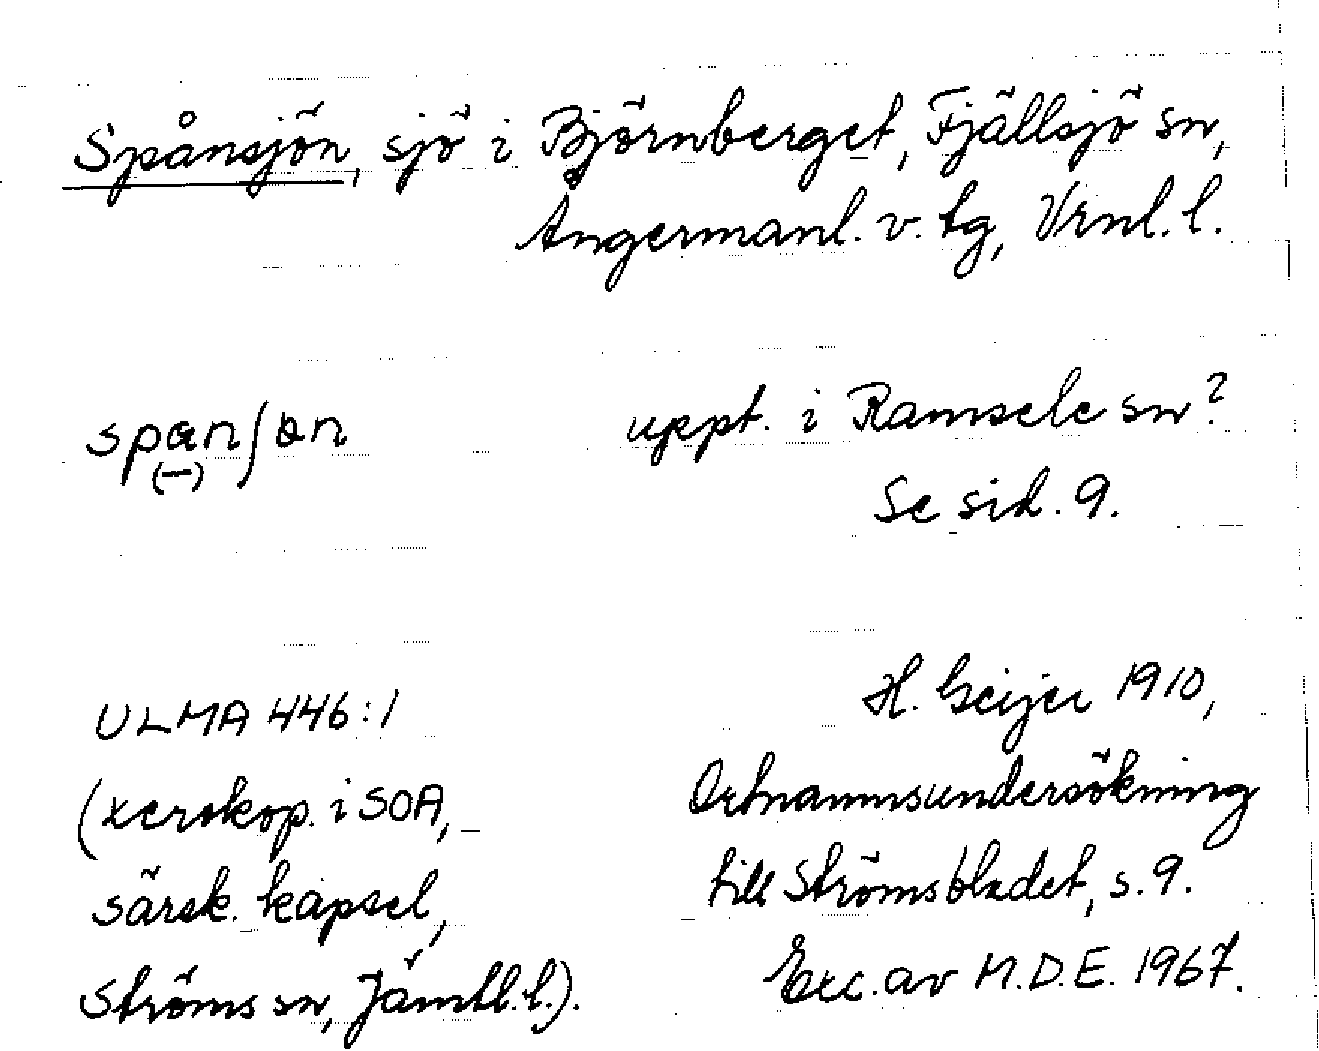 Spånsjön, sjö i Björnberget, Fjällsjö sn,
Ångermanl. v. tg, Vrnl. l.
uppt. i Ramsele sn?
Se sid. 9.
ULMA 446:1
(xerokop. i SOA,
särsk. kapsel,
Ströms sn, Jämtl. l.).
H. Geijer 1910,
Ortnamnsundersökning
till Strömsbladet, s. 9.
Exc. av M.D.E. 1967.